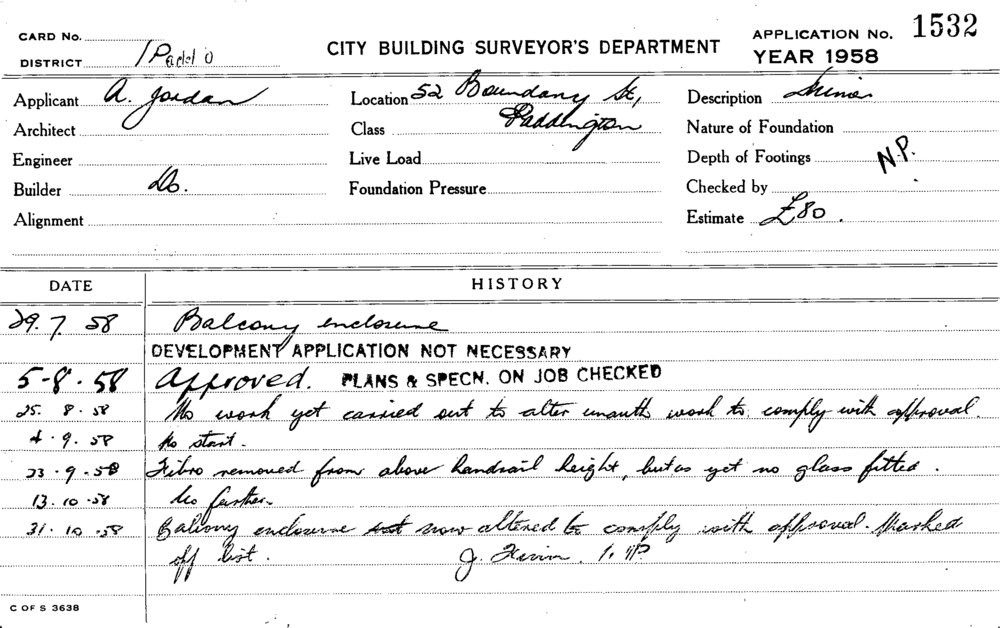 CARD No.
DISTRICT 1 Padd o
CITY BUILDING SURVEYOR'S DEPARTMENT
APPLICATION No. 1532
YEAR 1958
Applicant A. Jordan
Location 52 Boundary St,
Description Minor
Architect
Class Paddington
Nature of Foundation
Engineer
Live Load
Depth of Footings N.P.
Builder Do.
Foundation Pressure
Checked by
Alignment
Estimate £80.
DATE HISTORY
29. 7. 58 Balcony enclosure
DEVELOPMENT APPLICATION NOT NECESSARY
5-8-58 Approved. PLANS & SPECN. ON JOB CHECKED
25. 8. 58 No work yet carried out to alter unauth work to comply with approval.
4. 9. 58 No start.
23. 9. 58 Fibro removed from above handrail height, but as yet no glass fitted.
13. 10. 58 No further.
31. 10. 58 Balcony enclosure not now altered to comply with approval. Marked
off list. J.
C OF S 3638